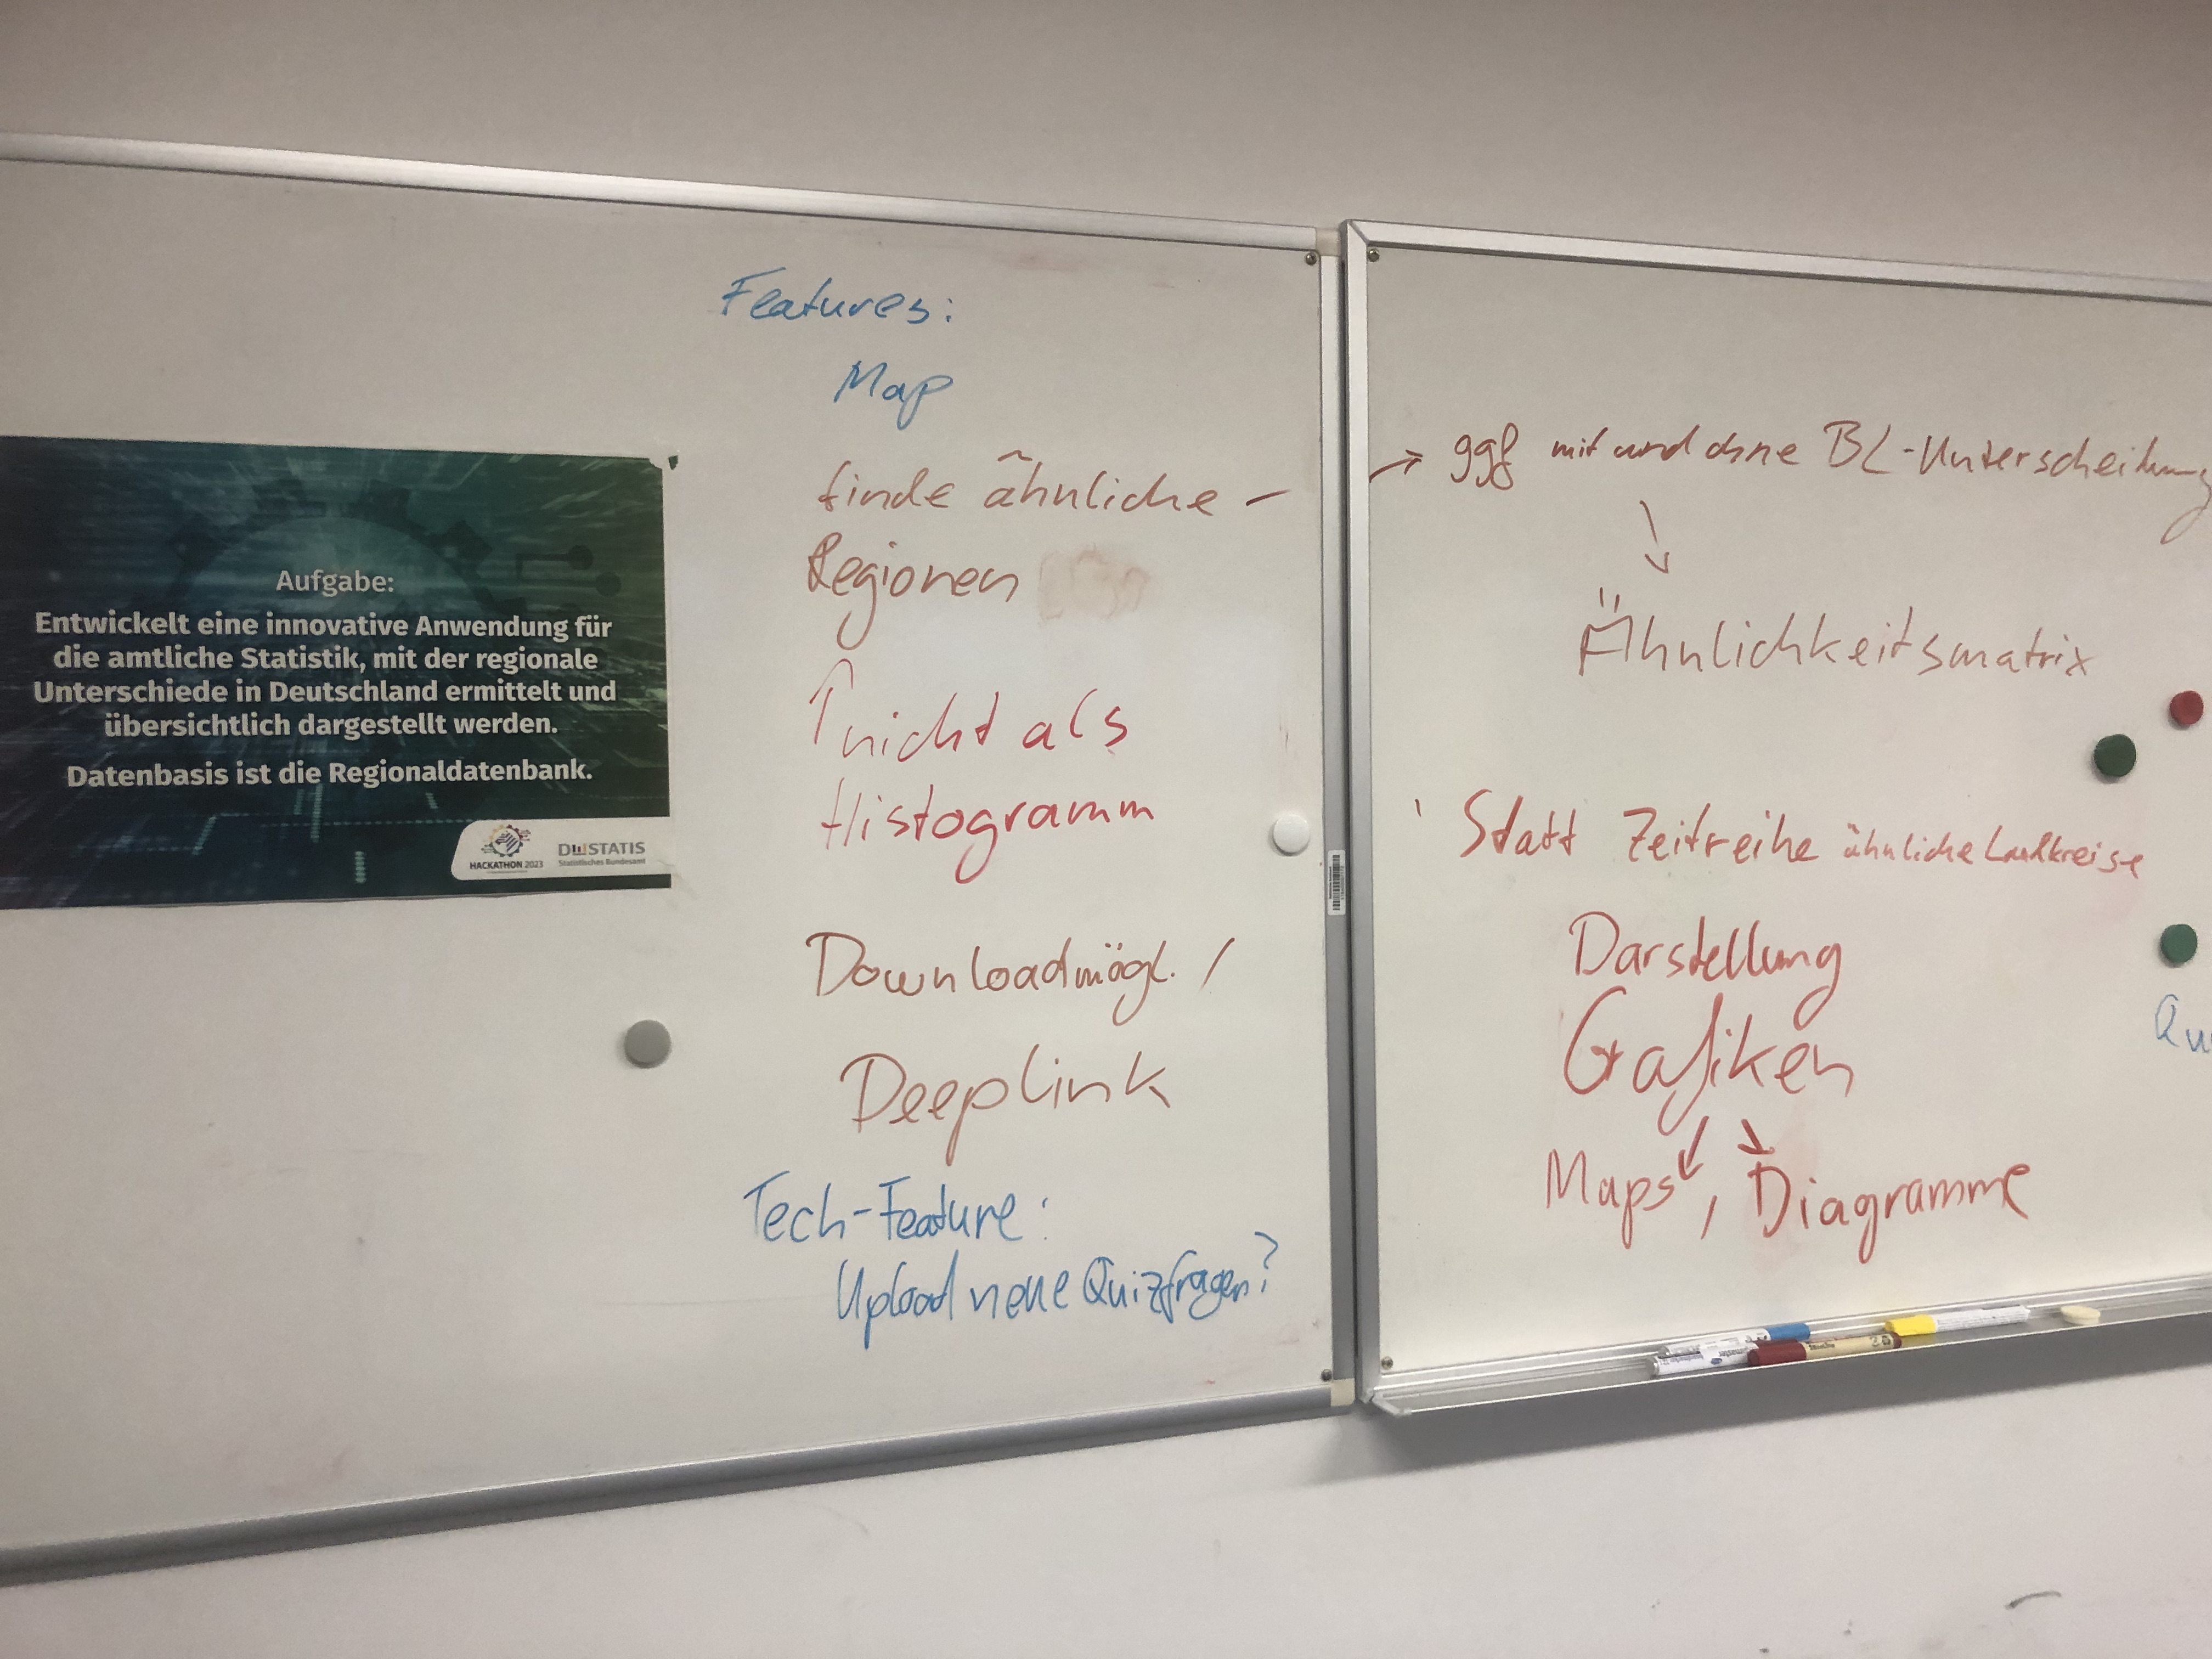 Aufgabe:
Entwickelt eine innovative Anwendung für
die amtliche Statistik, mit der regionale
Unterschiede in Deutschland ermittelt und
übersichtlich dargestellt werden.
Datenbasis ist die Regionaldatenbank.
HACKATHON 2023
DESTATIS
Statistisches Bundesamt
Features:
Map
finde ähnliche –
Regionen
↑ nicht als
Histogramm
Downloadmögl. /
Deeplink
Tech-Feature:
Upload neue Quizfragen?
→ ggf mit und ohne BL-Unterscheidung
↓
Ähnlichkeitsmatrix
Statt Zeitreihe ähnliche Landkreise
Darstellung
Grafiken
Maps, Diagramme
Qu